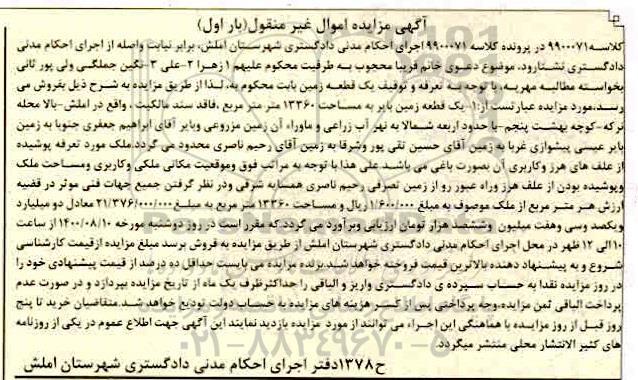 آگهی مزایده اموال غیر منقول(بار اول)
کلاسه۹۹۰۰۰۷۱ در پرونده کلاسه ۹۹۰۰۰۷۱ اجرای احکام مدنی دادگستری شهرستان املش، برابر نیابت واصله از اجرای احکام مدنی
دادگستری تشتارود، موضوع دعوی خانم فریبا محجوب به طرفیت محکوم علیهم ۱زهرا ۲-علی ۳-نگین جملگی ولی پور ثانی
بخواسته مطالبه مهریه، با توجه به تعرفه و توقیف یک قطعه زمین بابت محکوم به، لذا از طریق مزایده به شرح ذیل بفروش می
رسد،مورد مزایده عبارتست از:۱-یک قطعه زمین بایر به مساحت ۱۳۳۶۰ متر مربع ،فاقد سند مالکیت ، واقع در املش-بالا محله
نرکه-کوچه بهشت پنجم-با حدود اربعه شمالا به نهر آب زراعی و ماوراء آن زمین مزروعی وبایر آقای ابراهیم جعفری جنوبا به زمین
بایر عیسی پیشوازی غربا به زمین آقای حسین تقی پور وشرقا به زمین آقای رحیم ناصری محدود می گردد.ملک مورد تعرفه پوشیده
از علف های هرز وکاربری آن بصورت باغی می باشد.علی هذا با توجه به مراتب فوق وموقعیت مکانی ملکی وکاربری ومساحت ملک
وپوشیده بودن از علف هرز وراه عبور رو از زمین تصرفی رحیم ناصری همسایه شرقی ودر نظر گرفتن جمیع جهات فنی موثر در قضیه
ارزش هر متر مربع از ملک موصوف به مبلغ ۱/۶۰۰/۰۰۰ ریال و مساحت ۱۳۳۶۰ متر مربع به مبلغ۲۱/۳۷۶/۰۰۰/۰۰۰ معادل دو میلیارد
ویکصد وسی وهفت میلیون وششصد هزار تومان ارزیابی وبرآورد می گردد که مقرر است در روز دوشنبه مورخه ۱۴۰۰/۰۸/۱۰ از ساعت
۱۰الی ۱۲ ظهر در محل اجرای احکام مدنی دادگستری شهرستان املش از طریق مزایده به فروش برسد مبلغ مزایده ازقیمت کارشناسی
شروع و به پیشنهاد دهنده بالاترین قیمت فروخته خواهد شد.برنده مزایده می بایست حداقل ده درصد از قیمت پیشنهادی خود را
در روز مزایده نقدا به حساب سپرده ی دادگستری واریز و الباقی را حداکثرظرف یک ماه از تاریخ مزایده بپردازد و در صورت عدم
پرداخت الباقی ثمن مزایده،وجه پرداختی پس از کسر هزینه های مزایده به حساب دولت تودیع خواهد شد.متقاضیان خرید تا پنج
روز قبل از روز مزایده با هماهنگی این اجراء می توانند از مورد مزایده بازدید نمایند این آگهی جهت اطلاع عموم در یکی از روزنامه
های کثیر الانتشار محلی منتشر میگردد.
ح۱۳۷۸دفتر اجرای احکام مدنی دادگستری شهرستان املش
۰۲۱-۸۸۳۴۹۶۷۰-۵